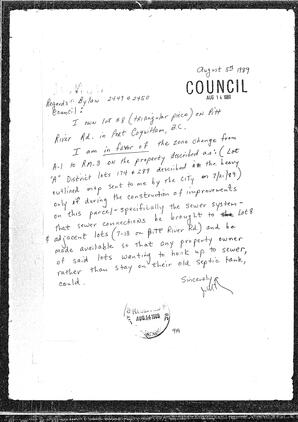 August 5th 1989
COUNCIL
AUG 14 1989
Regards: Bylaw 2449 & 2450
Council:
I own lot #8 (triangular piece) on Pitt
River Rd. in Port Coquitlam, B.C.
I am in favor of the zone change from
A-1 to RM-3 on the property described as: (Lot
"A" District lots 174 & 289 described in the heavy
outlined map sent to me by the City on 7/21/89)
only if during the construction of improvements
on this parcel - specifically the sewer system -
that sewer connections be brought to Lot 8
& adjacent lots (7-13 on Pitt River Rd) and be
made available so that any property owner
of said lots wanting to hook up to sewer,
rather than stay on their old septic tank,
could.
Sincerely
AUG 14 1989